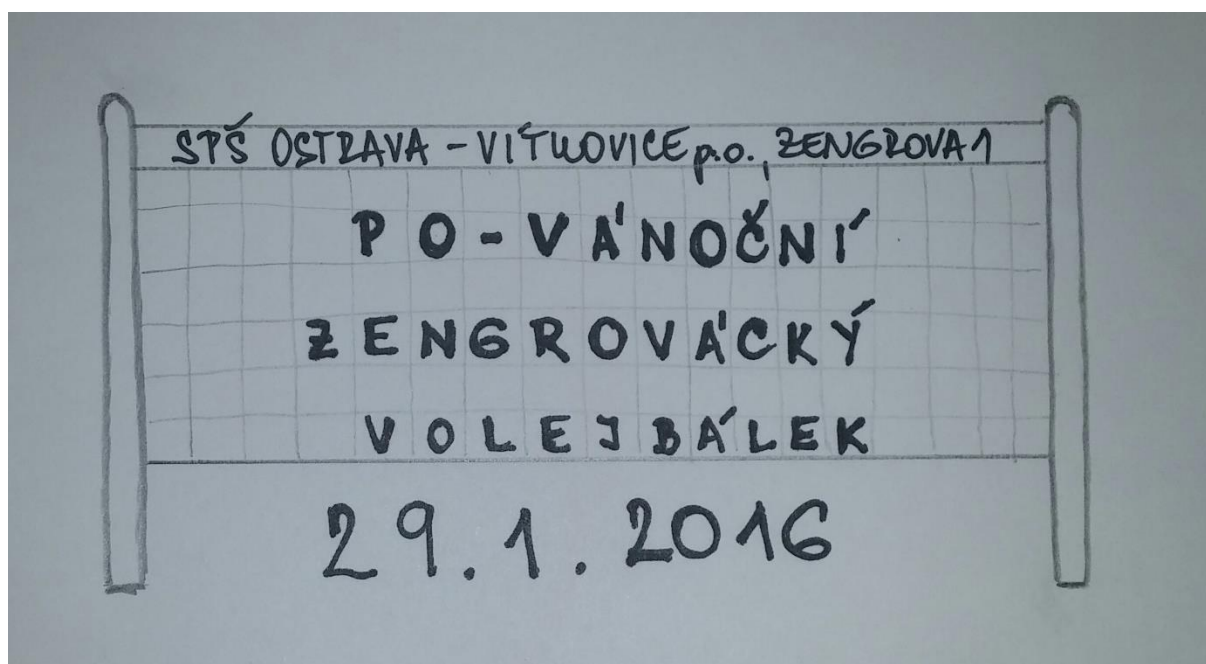 SPŠ OSTRAVA - VÍTKOVICE p.o., ZENGROVA 1
PO-VÁNOČNÍ
ZENGROVÁCKÝ
VOLEJBÁLEK
29.1.2016